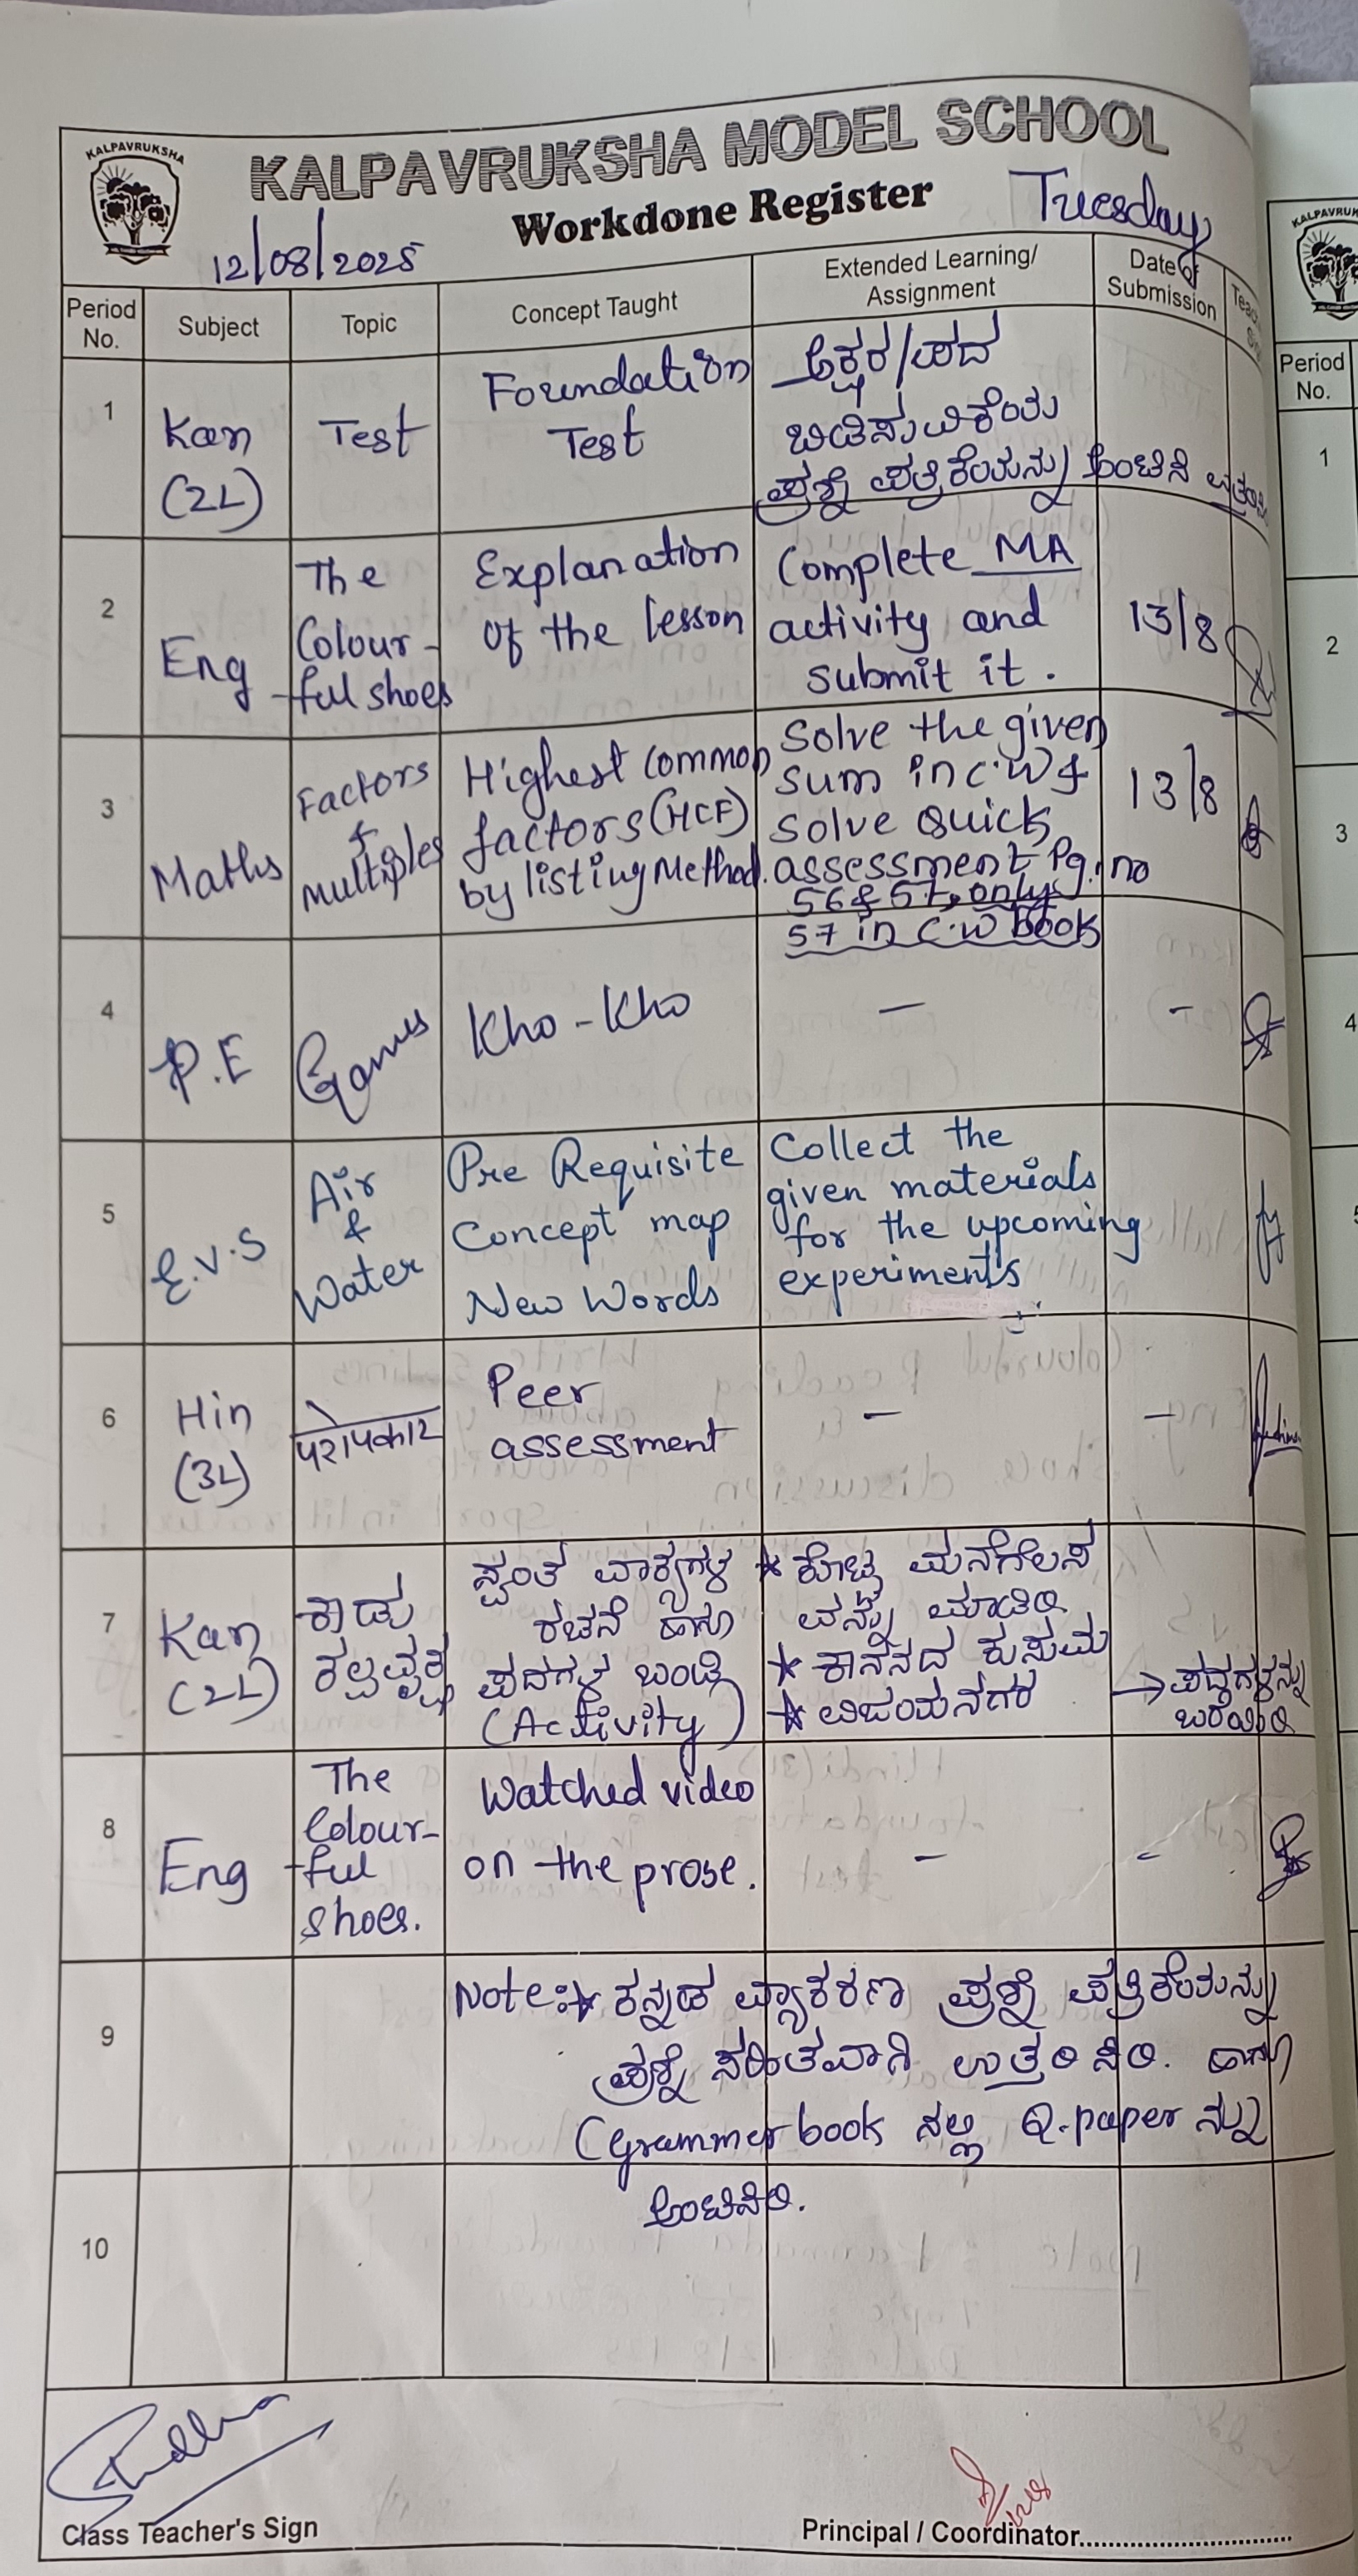 KALPAVRUKSHA
KALPAVRUKSHA MODEL SCHOOL
Workdone Register
Tuesday
12/08/2025
Period No.
Subject
Topic
Concept Taught
Extended Learning/
Assignment
Date of
Submission
1
Kan
(2L)
Test
Foundation
Test
ಅಕ್ಷರ/ಪದ
ಬಿಡಿಸುವಿಕೆಯ
ಪ್ರಶ್ನೆ ಪತ್ರಿಕೆಯನ್ನು ಅಂಟಿಸಿ
2
Eng
The
Colour-
-ful shoes
Explanation
of the lesson
Complete MA
activity and
submit it.
13/8
3
Maths
Factors
&
multiples
Highest Common
factors (HCF)
by listing Method.
Solve the given
sum in C.W &
solve Quick
assessment Pg.no
56 & 57, only
57 in C.W book
13/8
4
P.E
Games
Kho-Kho
-
-
5
E.V.S
Air
&
Water
Pre Requisite
Concept map
New Words
Collect the
given materials
for the upcoming
experiments
6
Hin
(3L)
परोपकार
Peer
assessment
-
-
7
Kan
(2L)
ಕಾಡು
ಕಲ್ಪವೃಕ್ಷ
ಸ್ವಂತ ವಾಕ್ಯಗಳ
ರಚನೆ ಹಾಗೂ
ಪದಗಳ ಬಂಡಿ
(Activity)
* ಕೊಟ್ಟ ಮನೆಗೆಲಸ
ವನ್ನು ಮಾಡಿರಿ
* ಕಾನನದ ಕುಸುಮ
* ವಿಜಯನಗರ
→ ಪದ್ಯಗಳನ್ನು
ಬರೆಯಿರಿ
8
Eng
The
Colour-
-ful
shoes.
Watched video
on the prose.
-
-
9
Note:* ಕನ್ನಡ ವ್ಯಾಕರಣ ಪ್ರಶ್ನೆ ಪತ್ರಿಕೆಯನ್ನು
ಪ್ರಶ್ನೆ ಸಹಿತವಾಗಿ ಉತ್ತರಿಸಿರಿ. ಹಾಗೂ
(Grammer book ನಲ್ಲಿ Q.paper ನ್ನು
ಅಂಟಿಸಿರಿ.
10
Class Teacher's Sign
Principal / Coordinator
Period
No.
1
2
3
4